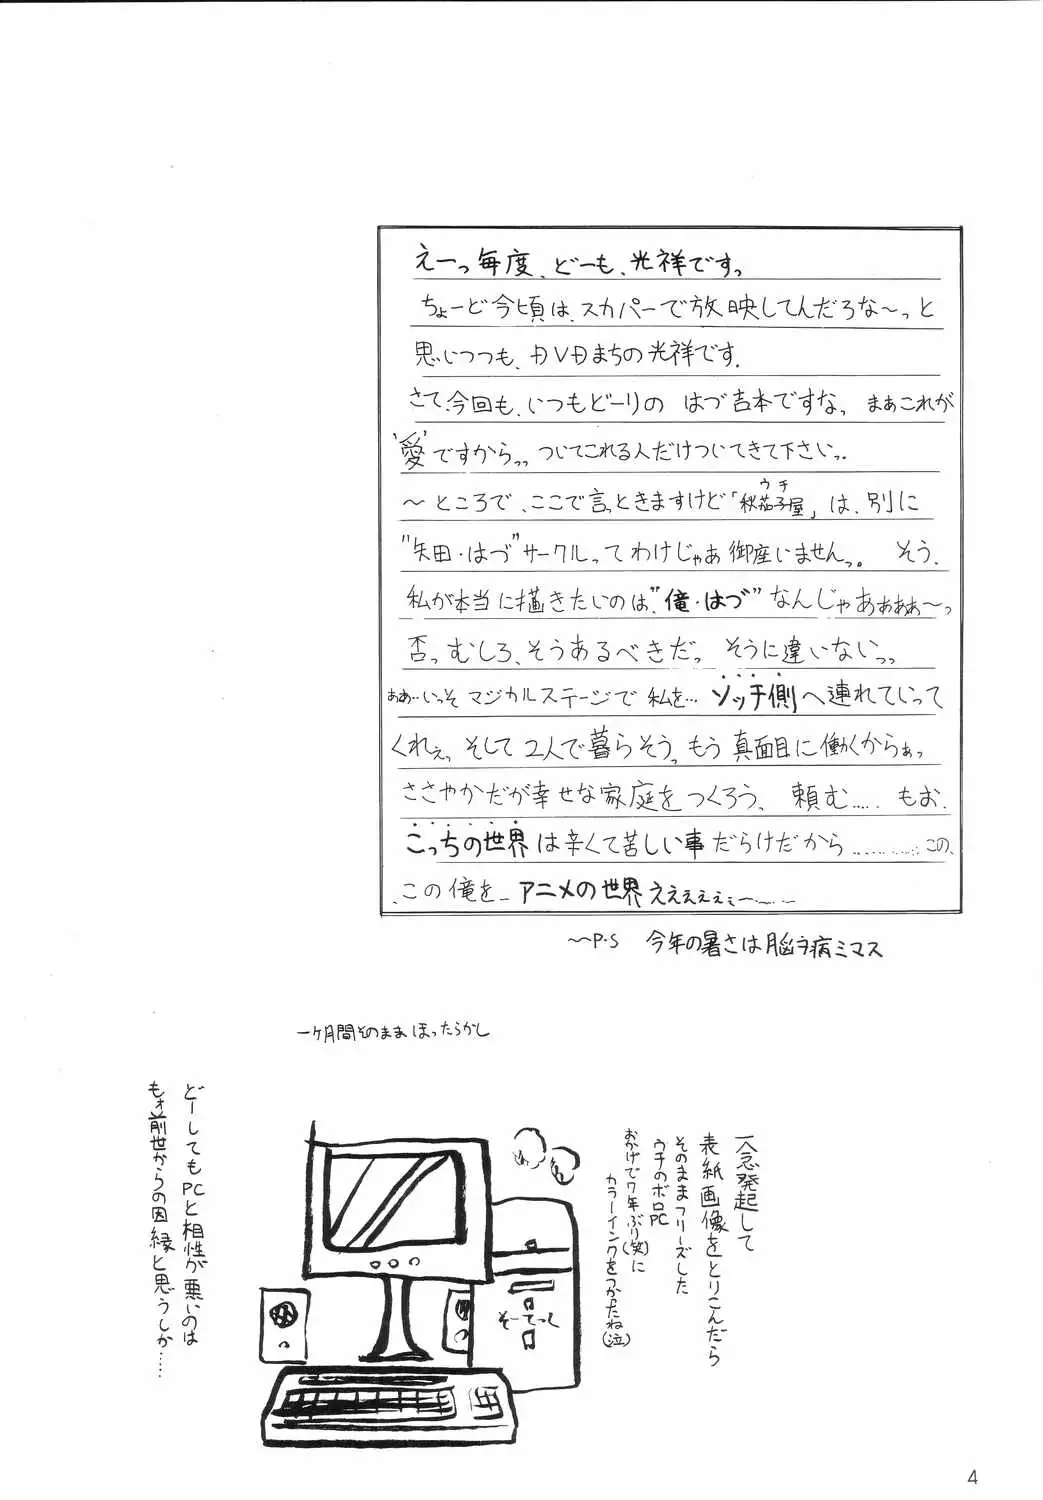 えーっ毎度、どーも、光祥ですっ
ちょーど今頃は、スカパーで放映してんだろな〜っと
思いつつも、DVDまちの光祥です.
さて、今回も、いつもどーりの はづ吉本ですなっ まぁこれが
'愛'ですからっっ ついてこれる人だけついてきて下さいっ.
〜ところで、ここで言っときますけど「秋茄子屋」は、別に
ウチ
"矢田・はづ"サークルってわけじゃぁ御座いませんっ。 そう、
私が本当に描きたいのは、"俺・はづ"なんじゃあぁぁぁ〜っ
否っむしろ、そうあるべきだっ そうに違いないっっ
ああ…いっそマジカルステージで 私を… ソッチ側へ連れていって
くれぇっ そして2人で暮らそうっもう真面目に働くからぁっ
ささやかだが幸せな家庭をつくろう、 頼む…… もお、
こっちの世界は辛くて苦しい事だらけだから………… この、
この俺を… アニメの世界ええぇぇぇぇ〜
〜P.S 今年の暑さは脳ヲ病ミマス
一ヶ月間そのままほったらかし
一念発起して
表紙画像をとりこんだら
そのままフリーズした
ウチのボロPC
おかげで7年ぶり(笑)に
カラーインクをつかたね(泣)
そーてっく
どーしてもPCと相性が悪いのは
もぉ前世からの因縁と思うしか……
4